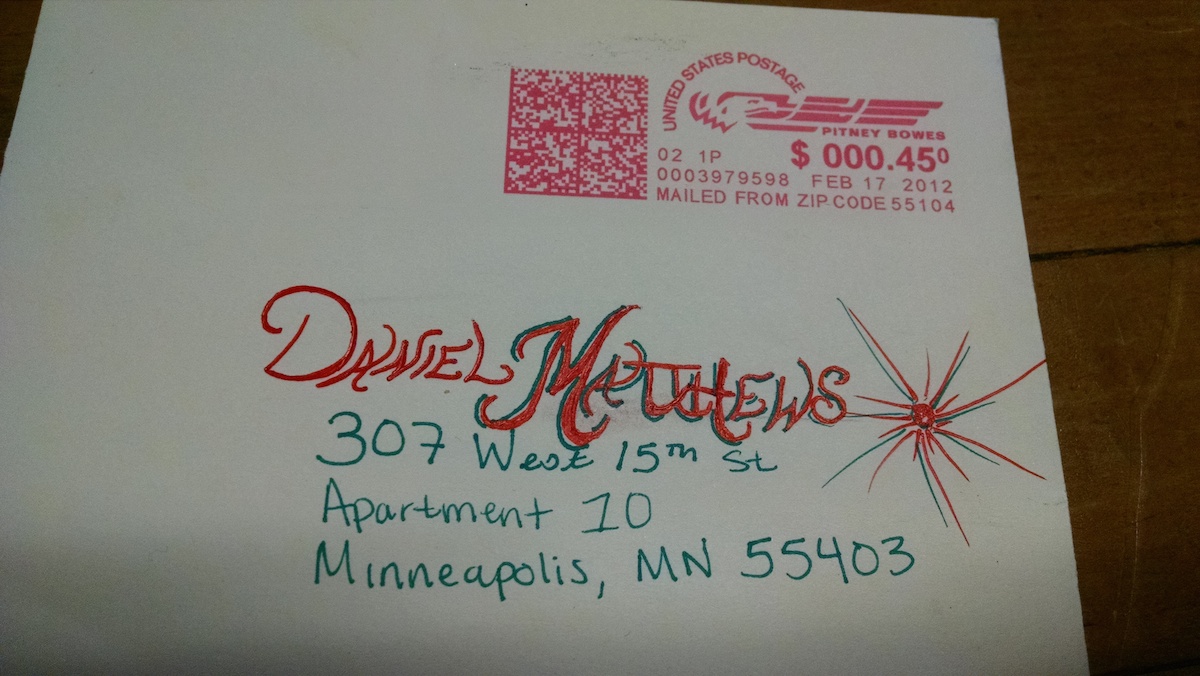 UNITED STATES POSTAGE
PITNEY BOWES
02 1P $ 000.45⁰
0003979598 FEB 17 2012
MAILED FROM ZIP CODE 55104
DANIEL MATTHEWS
307 West 15th St
Apartment 10
Minneapolis, MN 55403